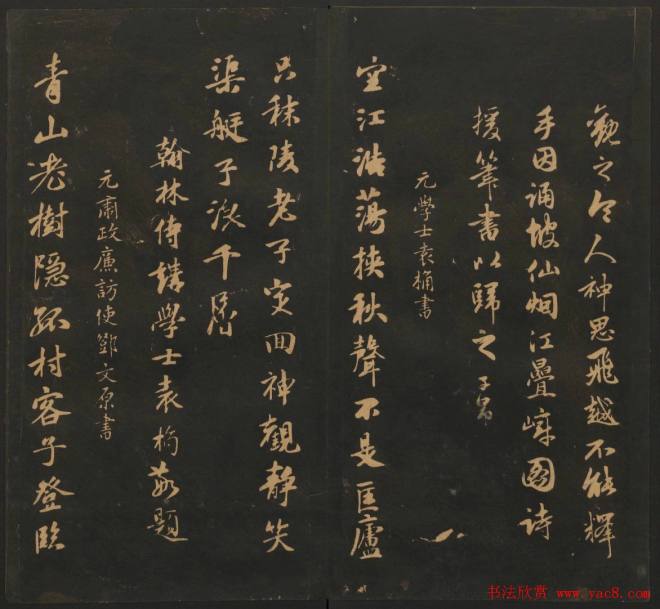 觀之令人神思飛越不能釋
手因誦坡仙烟江疊嶂圖詩
援筆書以歸之子昂
元學士袁桷書
空江浩蕩挾秋聲不是匡廬
只秣陵老子定回神觀靜笑
渠艇子浪千層
翰林侍講學士袁桷敬題
元肅政廉訪使鄧文原書
青山老樹隱孤村客子登臨
书法欣赏 www.yac8.com